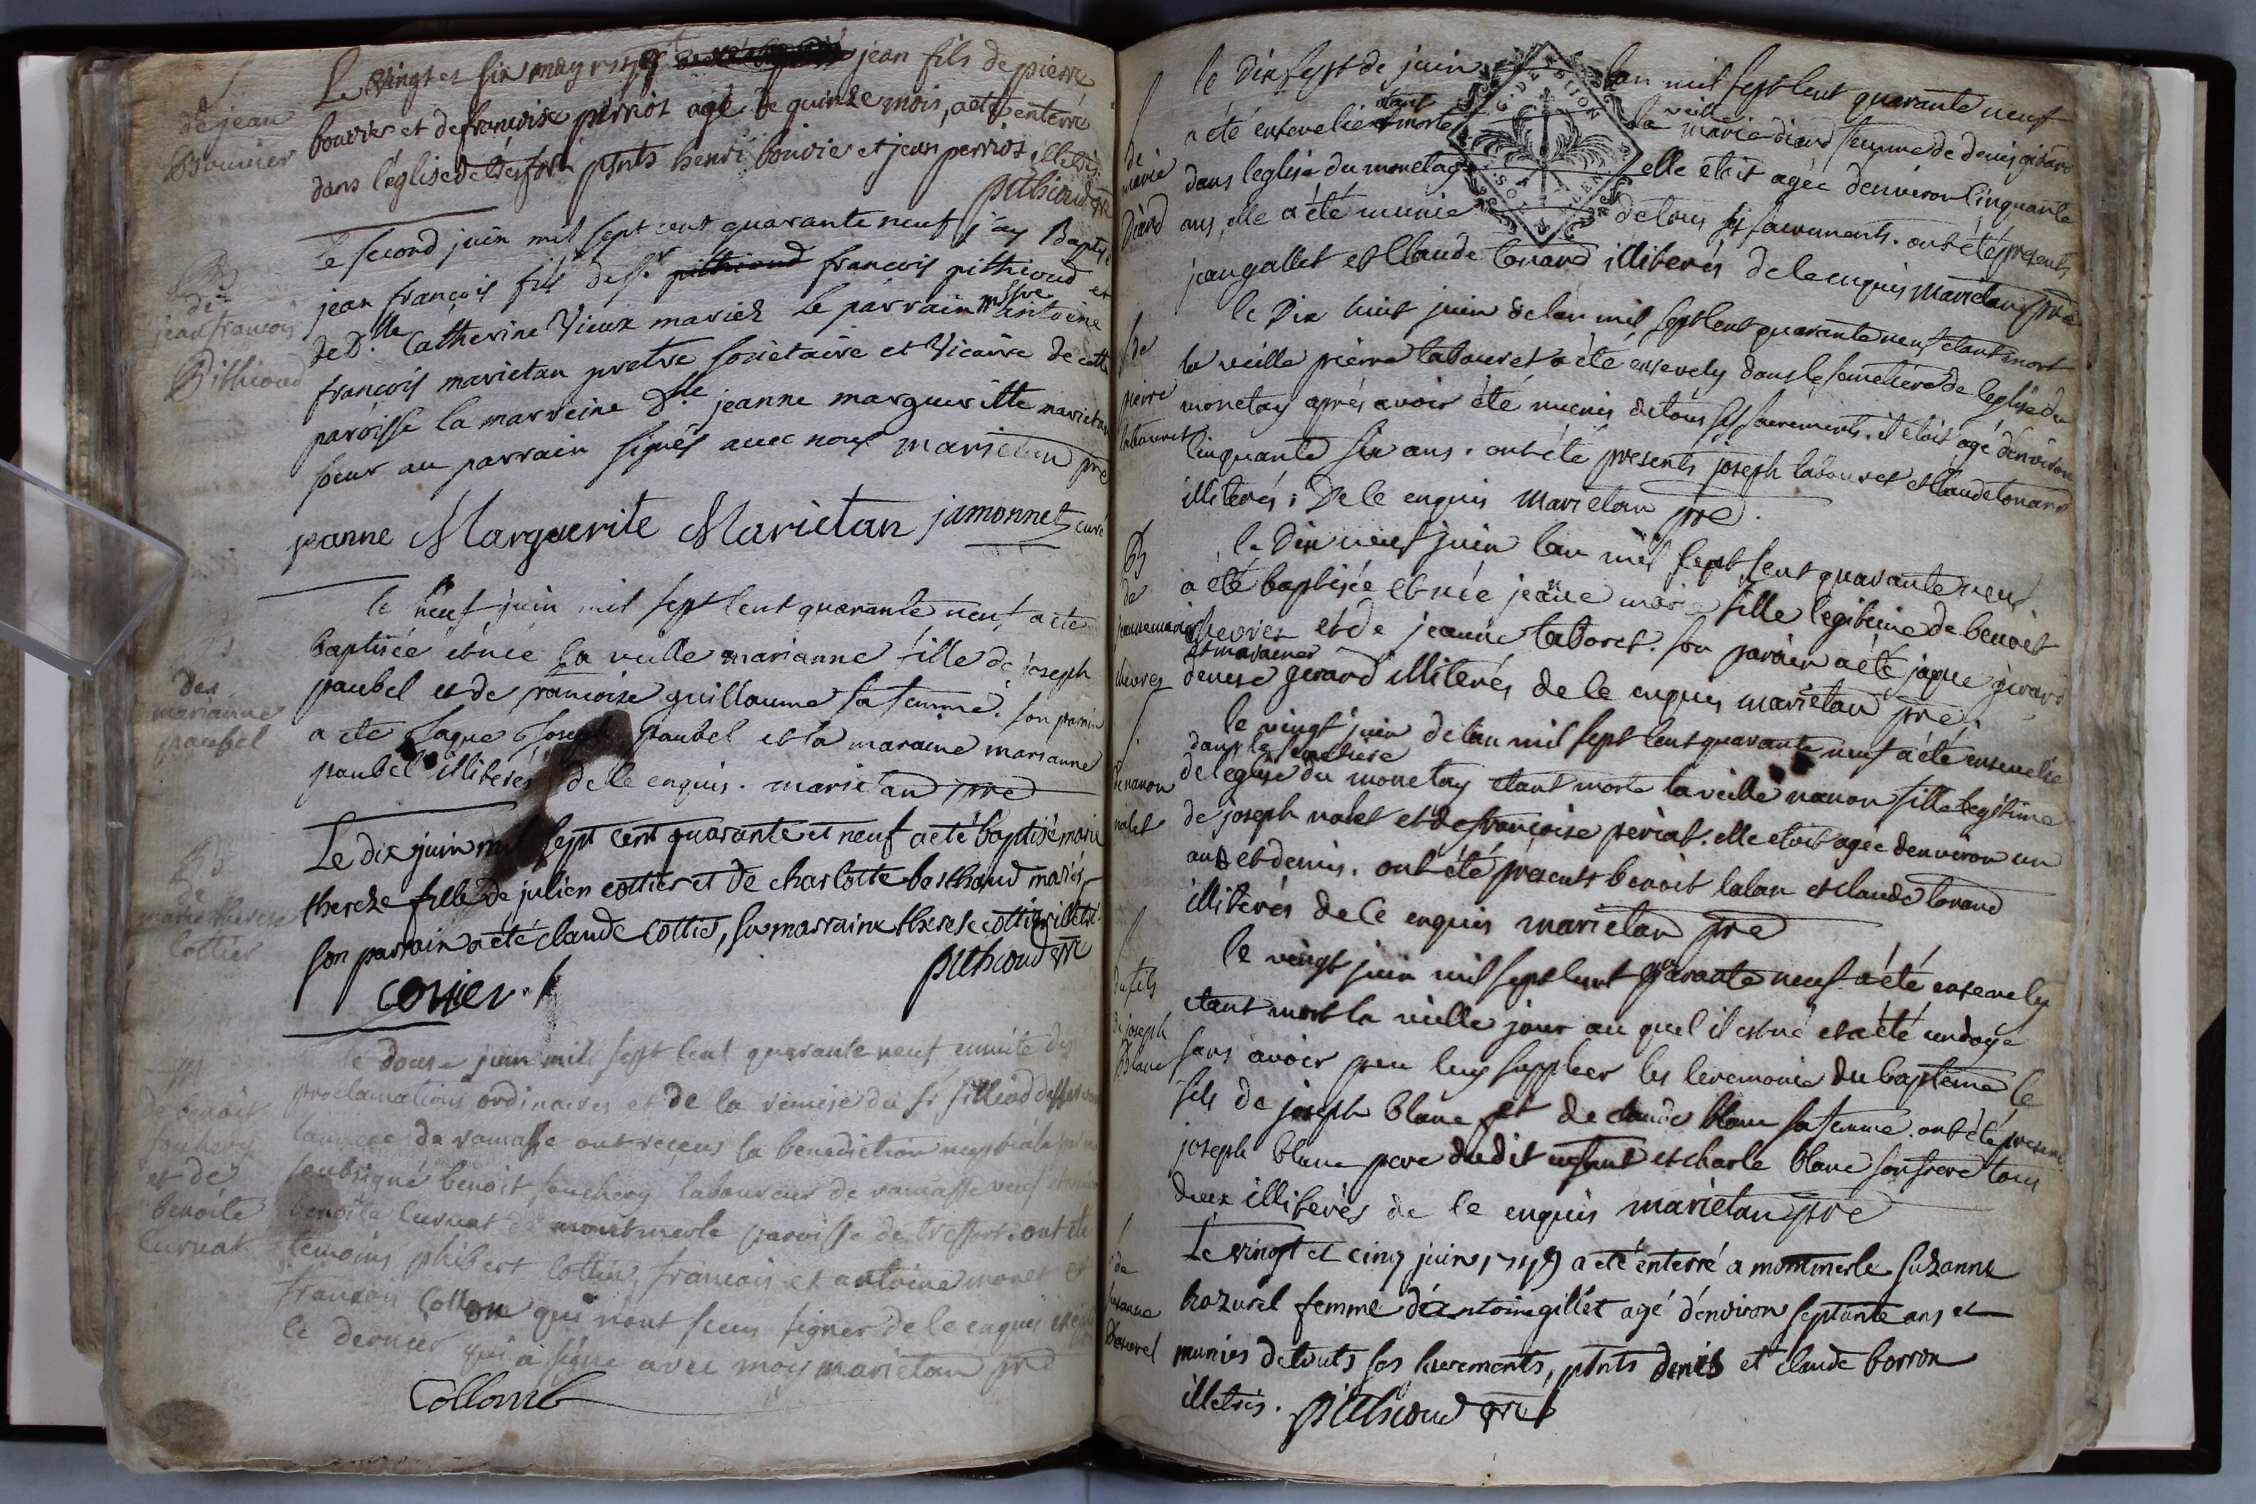 S
de jean
Bouvier
Le vingt et six may 1749 jean fils de pierre
bouvier et de francoise perriot agé de quinze mois, a eté enterré
dans l'église de tresfort pnts henri bouvie et jean perriot, illetrés.
pithioud pre
B
de
jean francois
Pithioud
Le second juin mil sept cent quarante neuf j'ay Baptisé
jean françois fils de Sr francois pithioud et
de Dlle Catherine Vieux mariez le parrain msire antoine
françois marietan pretre societaire et Vicaire de cette
paroisse la marreine Dlle jeanne marguerithe marietan
soeur au parrain signés avec nous marietan pre
jeanne Marguerite Marietan jamonnet curé
B
de
marianne
paubel
le neuf juin mil sept cent quarante neuf a eté
baptisée et née la veille marianne fille de joseph
paubel et de francoise guillaume sa femme. son parrin
a ete jaque joseph paubel et la maraine marianne
paubel illiterés de le enquis. marietan pre
B
de
marie therese
Cottier
Le dix juin mil sept cent quarante et neuf a eté baptisé marie
thereze fille de julien cottier et de charlotte berthaud mariés
son parrain a eté claude Cottier, sa marraine therese cottier illetré.
pithioud pre
cottier
M
de benoit
souchery
et de
benoite
Curnat
le douse juin mil sept cent quarante neuf ensuite des
proclamations ordinaires et de la remise du sr filliod desservant
l'annexe de ramasse ont receus la benediction nuptiale
soubsigné benoit souchery laboureur de ramasse veuf et
benoite Curnat de montmerle paroisse de tresfort. ont été
temoins philbert cottin, francois et antoine monet et
francois Collon qui n'ont sceus signer de le enquis
le dernier qui a signé avec moy marietan pre
Collomb
S
de
marie
Diard
le dix sept de juin lan mil sept cent quarante neuf
a été ensevelie etant morte la veille marie diard femme de denis girard
dans leglise du monetay elle étoit agée denviron Cinquante
ans, elle a été munie de tous ses sacrements. ont été presents
jean gallet et Claude tonard illiterés de le enquis marietan pre
S de
pierre
labouret
le Dix huit juin de lan mil sept cent quarante neuf etant mort
la veille pierre labouret a été ensevely dans le semetiere de l'eglise du
monetay aprés avoir été munis de tous ses sacrements. il étoit agé denviron
Cinquante six ans. ont été presents joseph labouret et Claude tonard
illiterés; De le enquis marietan pre.
B
de
jeanne marie
chevrez
le Dix neuf juin lan mil sept cent quarante neuf
a été baptisée et née jeanne marie fille legitime de benoit
chevrez et de jeanne laboret. son parain a été jaque girard
et maraine
denise gerard illiterés de le enquis marietan pre.
S
de nanon
nalet
le vingt juin de lan mil sept cent quarante neuf a été ensevelie
dans le semetiere
de l'église du monetay etant morte la veille nanon fille legitime
de joseph nalet et de françoise periat. elle etoit agée denviron un
ans et demis. ont été presents benoit lalan et claude tonand
illiterés de le enquis marietan pre
S
du fils
de joseph
Blanc
le vingt juin mil sept cent quarante neuf a été ensevely
etant mort la veille jour au quel il est né et a été undoyé
sans avoir peu luy supplier les ceremonie du baptême le
fils de joseph blanc et de claude blanc sa femme. ont été presens
joseph blanc pere dudit enfant et charle blanc son frere tous
deux illiterés de le enquis marietan pre
S
de
suzanne
Le vingt et cinq juin 1749 a eté enterré a montmerle suzanne
hozurel femme d'antoine gillet agé d'environ septante ans et
munies de touts ses sacrements, pnts denis et claude borron
illetrés. pithioud pre